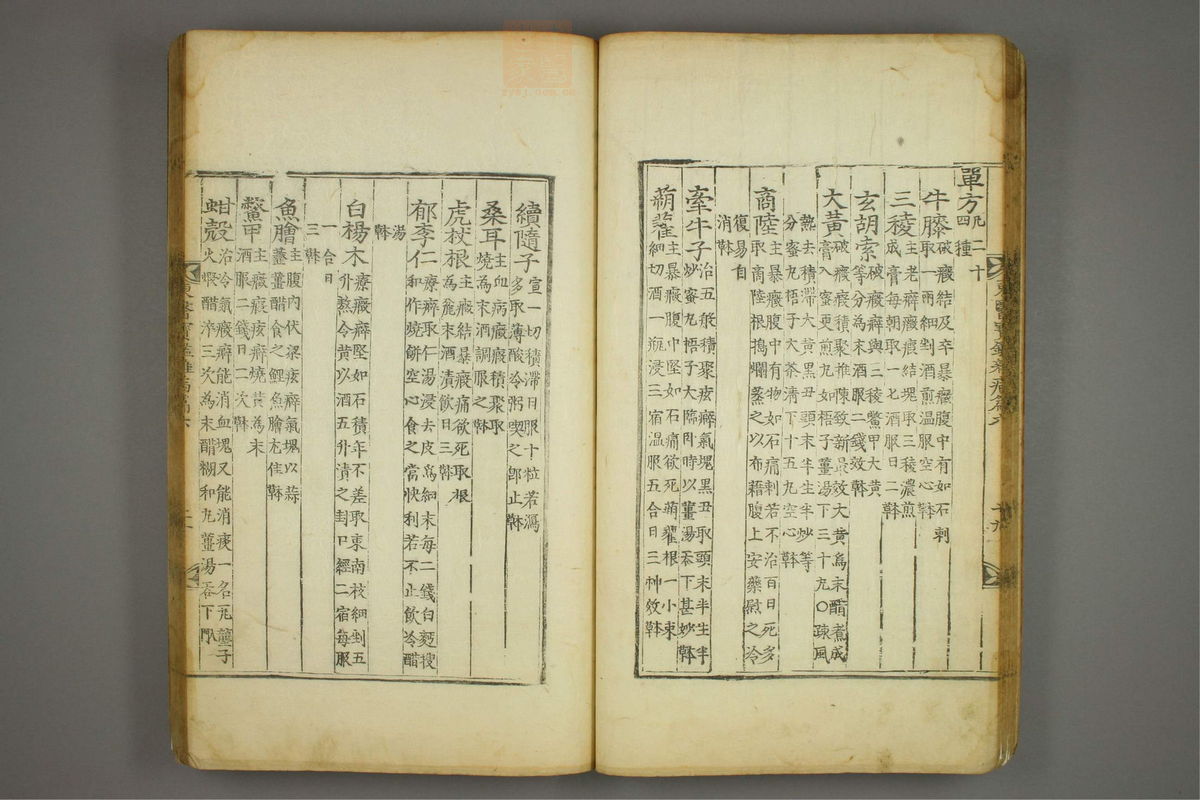 單方凡二十四種
牛膝破癥結及卒暴癥腹中有如石刺
取一兩細剉酒煎溫服空心
三稜主老癖癥瘕結塊取三稜濃煎
成膏每朝取一匕酒服日二
玄胡索破癥癖與三稜鱉甲大黃
等分為末酒服二錢效
大黃破癥瘕積聚推陳致新最效大黃爲末醋煮成
膏入蜜更煎丸如梧子薑湯下三十丸〇疎風
熱去積滯大黃黑丑頭末半生半炒等
分蜜丸梧子大茶淸下十五丸空心
商陸主暴癥腹中有物如石痛刺若不治百日死多
取商陸根搗爛蒸之以布藉腹上安藥熨之冷
復易自
消
牽牛子治五般積聚痃癖氣塊黑丑取頭末半生半
炒蜜丸梧子大臨臥時以薑湯吞下甚妙
蒴藋主暴癥腹中堅如石痛欲死蒴藋根一小束
細切酒一瓶浸三宿溫服五合日三神效
續隨子宣一切積滯日服十粒若瀉
多取薄酸冷粥喫之卽止
桑耳主血病癥瘕積聚取
燒爲末酒調服之
虎杖根主癥結暴瘕痛欲死取根
為末酒漬飲日三
郁李仁療癖取仁湯浸去皮爲細末每二錢白麪搜
和作燒餠空心食之當快利若不止飲冷醋
湯
白楊木療癥癖堅如石積年不差取東南枝細剉五
升熬令黃以酒五升漬之封口經二宿每服
一合日
三
魚膾主腹內伏梁痃癖氣塊以蒜
虀薑醋食之鯉魚膾尤佳
鱉甲主癥瘕痃癖燒黃為末
酒服二錢日二次
蚶殼治冷氣癥癖能消血塊又能消痰一名瓦壟子
火煆醋淬三次為末醋糊和丸薑湯吞下